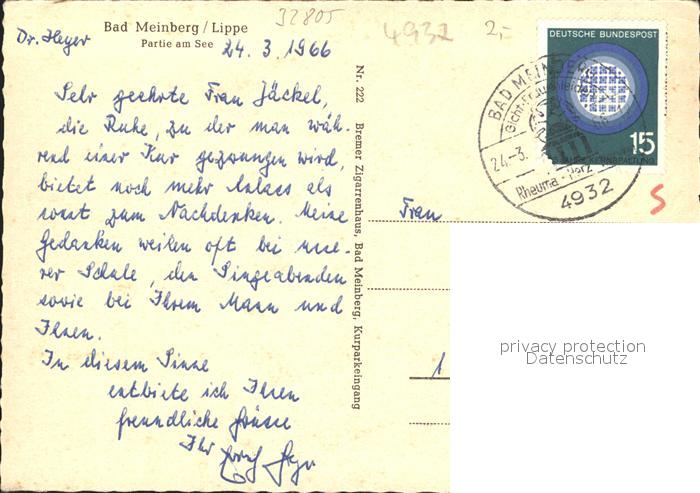 32805
4932
2,-
Dr. Heyer
Bad Meinberg / Lippe
Partie am See
24. 3. 1966
Sehr geehrte Frau Jäckel,
die Ruhe, zu der man wäh-
rend einer Kur gezwungen wird,
bietet noch mehr Anlass als
sonst zum Nachdenken. Meine
Gedanken weilen oft bei unse-
rer Schule, den Singeabenden
sowie bei Ihrem Mann und
Ihnen.
In diesem Sinne
entbiete ich Ihnen
freundliche Grüsse
Ihr
Nr. 222 Bremer Zigarrenhaus, Bad Meinberg, Kurparkeingang
DEUTSCHE BUNDESPOST
15
KERNSPALTUNG
BAD MEINBERG
24.-3.
Rheuma - Herz
4932
S
Frau
1
privacy protection
Datenschutz